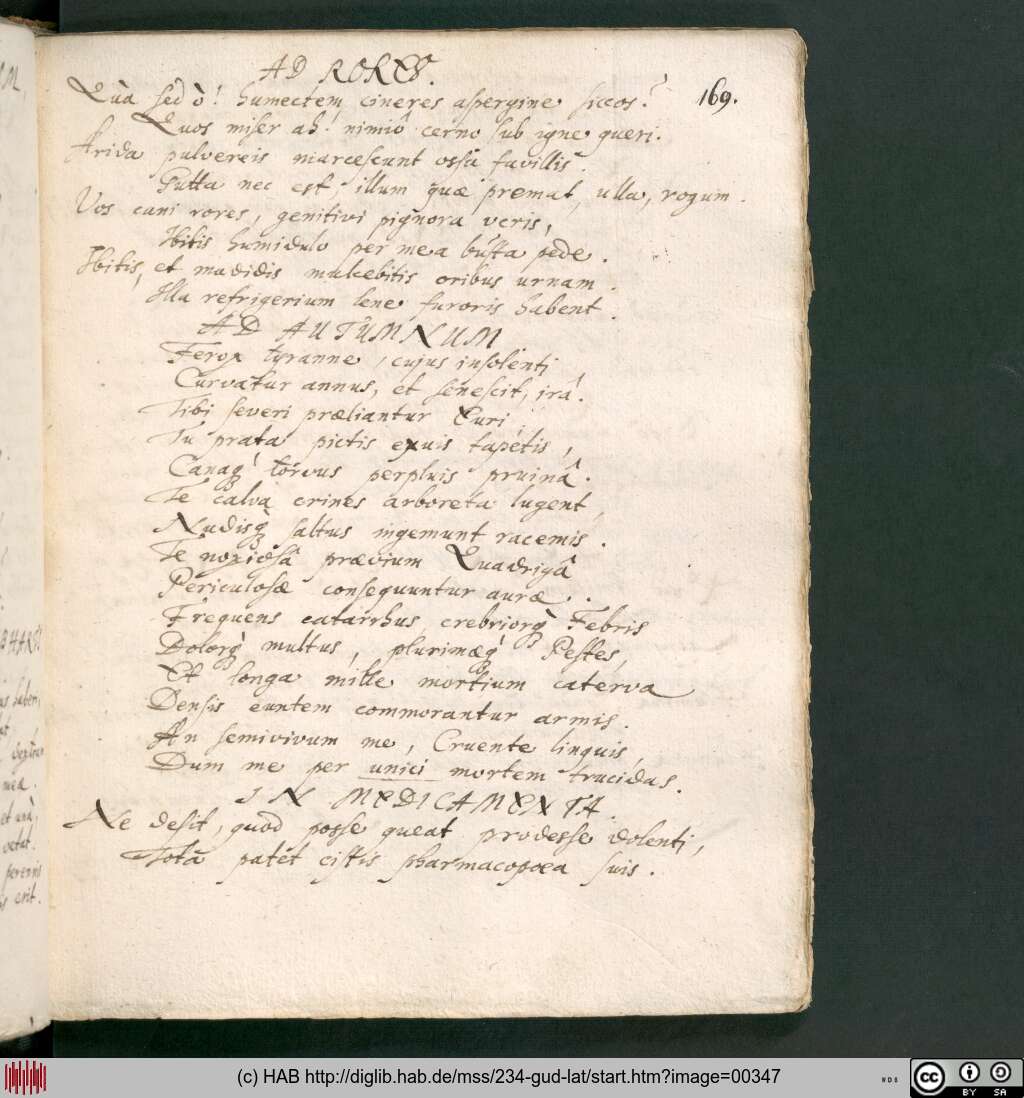 AD RORES.
169.
Quà sed ò! humectem cineres aspergine siccos?
Quos miser ah! nimiô cerno sub igne queri.
Arida pulvereis marcescunt ossa favillis.
Gutta nec est illum quæ premat, ulla, rogum.
Vos cani rores, genitivi pignora veris,
Ibitis humidulo per mea busta pede.
Ibitis, et madidis mulcebitis oribus urnam.
Illa refrigerium lene furoris habent.
AD AUTUMNUM
Ferox tyranne, cujus insolenti
Curvatur annus, et senescit, irâ.
Tibi severi præliantur Euri,
Tu prata pictis exuis tapetis,
Canaq́ torvus perpluis pruinâ.
Te calva crines arboreta lugent,
Nudisq́ saltus ingemunt racemis.
Te noxiosâ prævium Quadrigâ
Periculosæ consequuntur auræ.
Frequens catarrhus, crebriorq́ Febris
Dolorq́ multus, plurimæq́ Pestes,
Et longa mille mortium caterva
Densis euntem commorantur armis.
An semivivum me, Cruente linquis,
Dum me per unici mortem trucidas.
IN MEDICAMENTA.
Ne desit, quod posse queat prodesse dolenti,
Tota patet cistis pharmacopoea suis.
mea.
et unà,
vetat.
perennis
erit.
(c) HAB http://diglib.hab.de/mss/234-gud-lat/start.htm?image=00347
cc BY SA